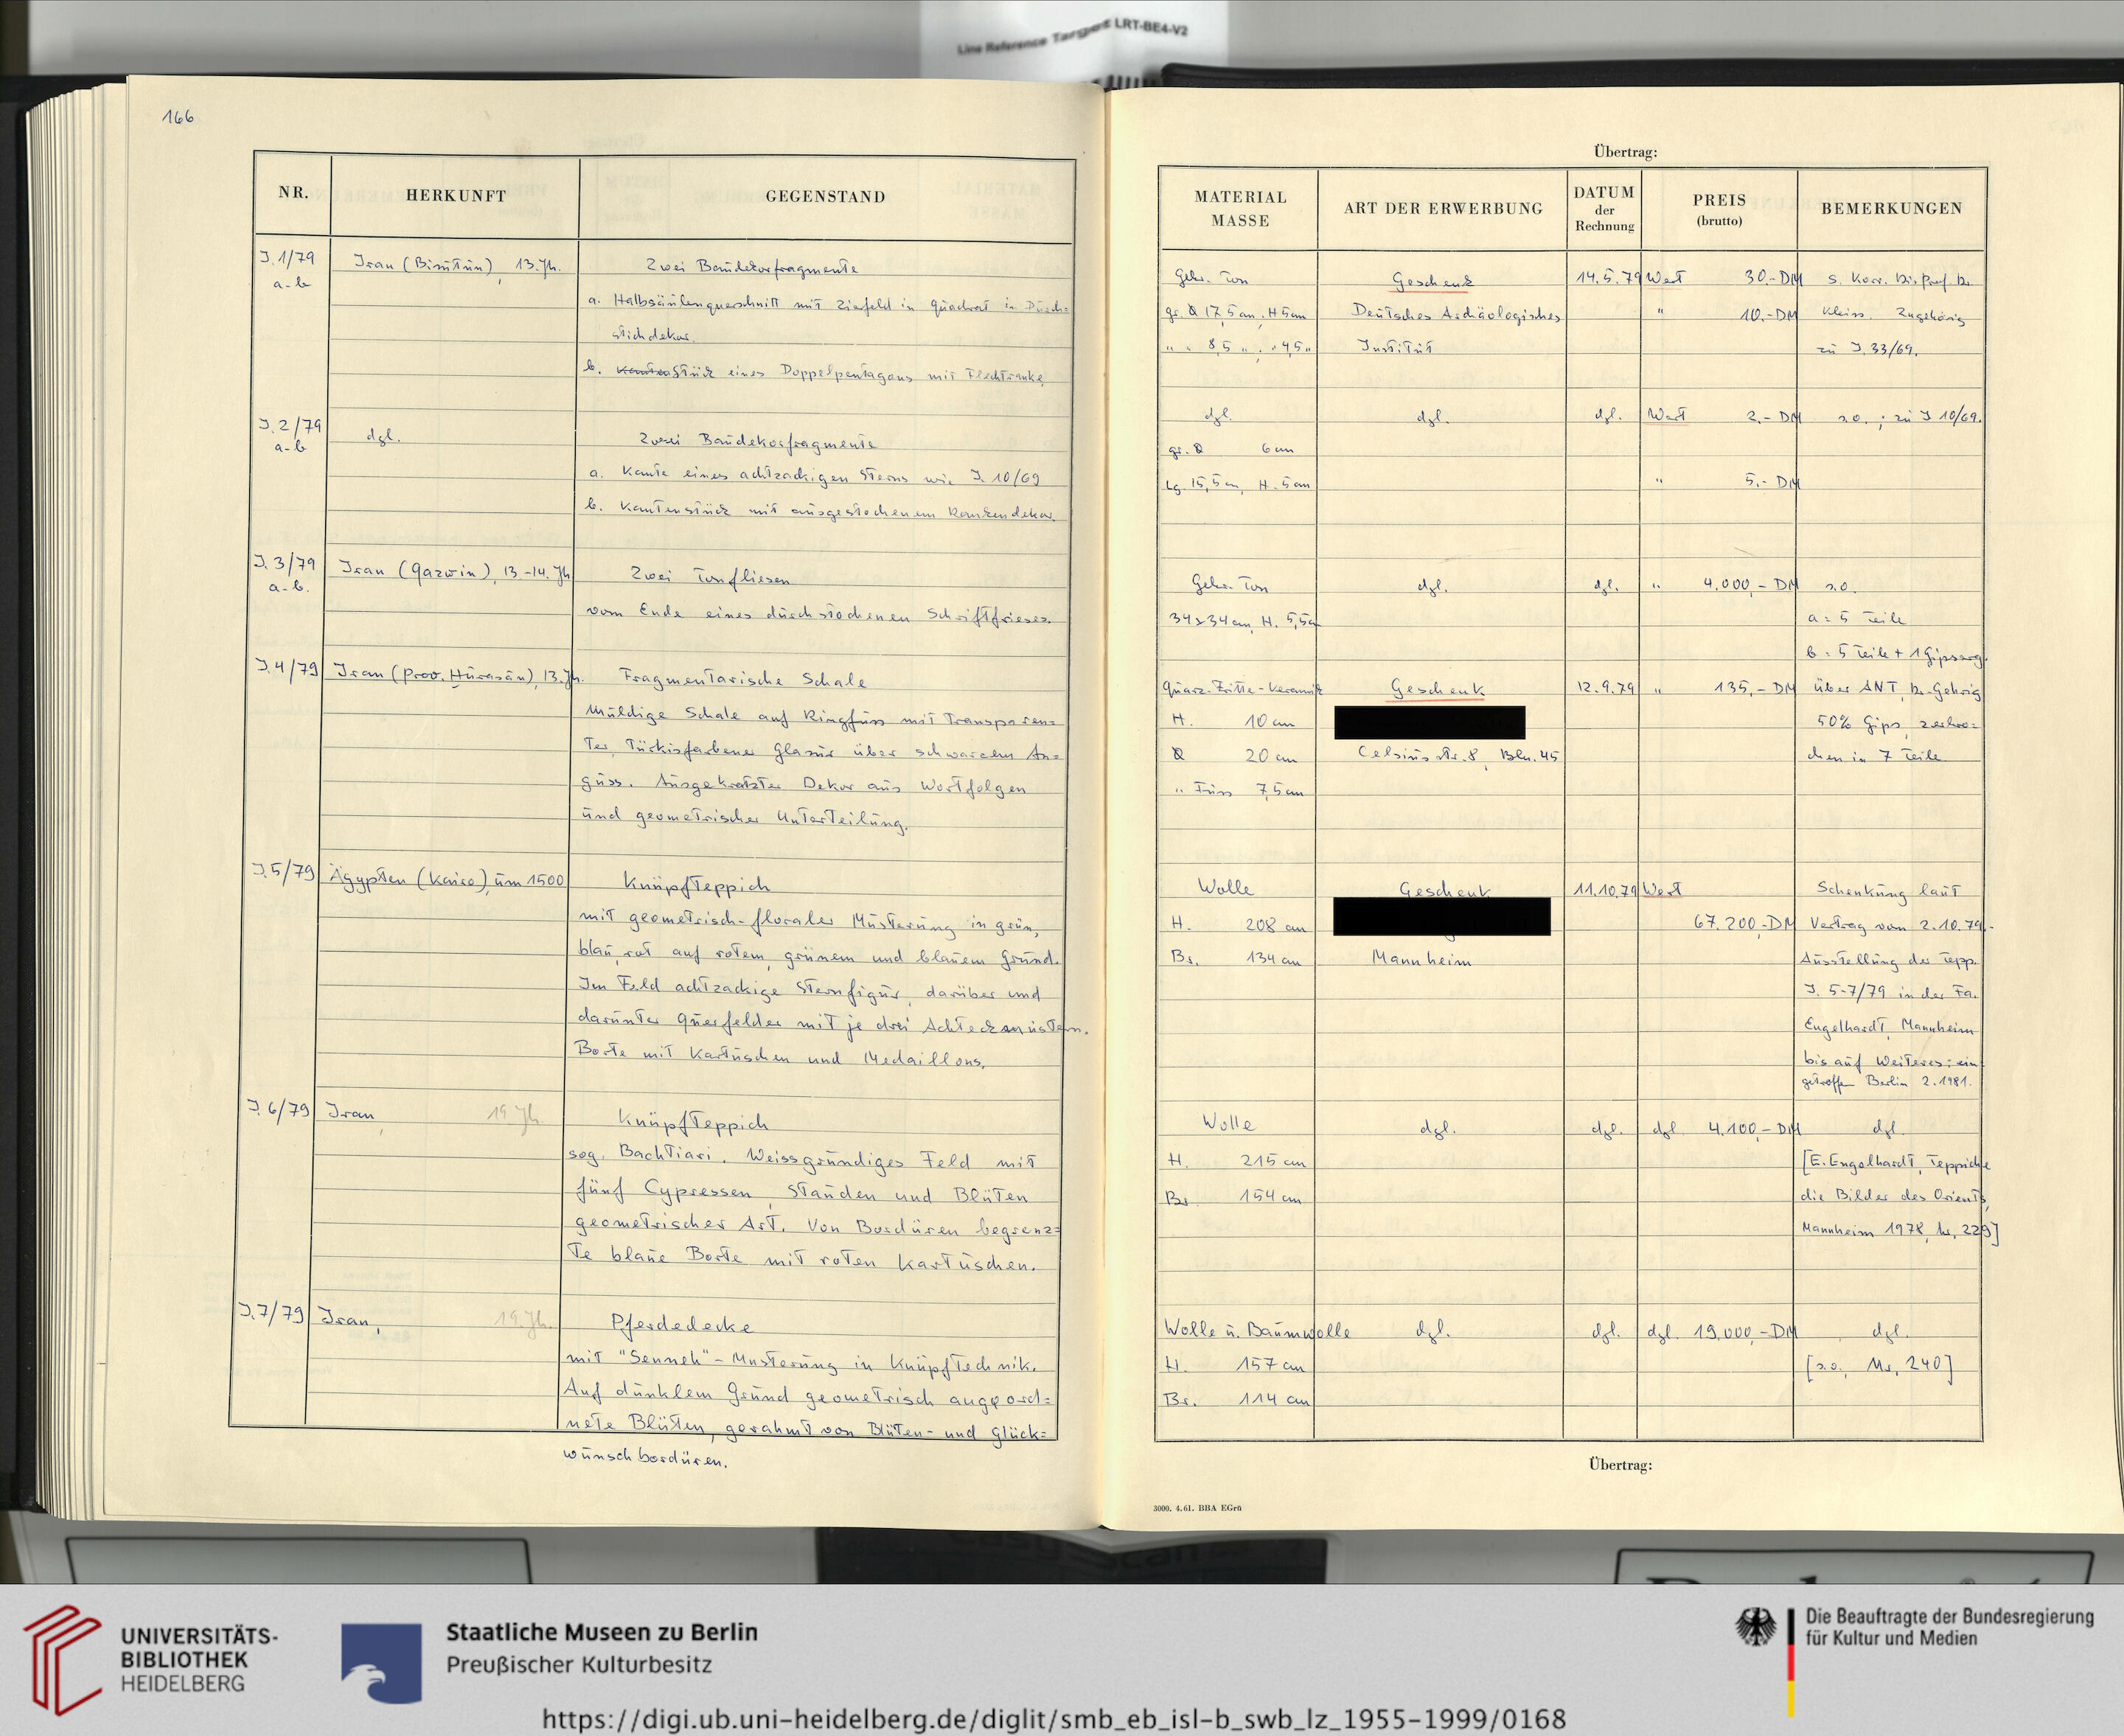 Line Reference Target LRT-BE4-V2
166
NR.
HERKUNFT
GEGENSTAND
J.1/79
a-b
Iran (Bisutun), 13. Jh.
Zwei Baudekorfragmente
a. Halbsäulenquerschnitt mit Zierfeld in Quadrat in Durch=
stichdekor.
b. Kantenstück eines Doppelpentagons mit Flechtranke
J.2/79
a-b
dgl.
Zwei Baudekorfragmente
a. Kante eines achtzackigen Sterns wie J. 10/69
b. Kantenstück mit ausgestochenem Rankendekor.
J.3/79
a-b.
Iran (Qazwin), 13-14. Jh
Zwei Tonfliesen
vom Ende eines durchstochenen Schriftfrieses.
J.4/79
Iran (Prov. Hurasan), 13. Jh.
Fragmentarische Schale
Muldige Schale auf Ringfuss mit Transparen=
ter, Türkisfarbener Glasur über schwarzem An=
guss. Ausgekratzter Dekor aus Wortfolgen
und geometrischer Unterteilung.
J.5/79
Ägypten (Kairo), um 1500
Knüpfteppich
mit geometrisch-floraler Musterung in grün,
blau, rot auf rotem, grünem und blauem Grund.
Im Feld achtzackige Sternfigur, darüber und
darunter Querfelder mit je drei Achteckmustern.
Borte mit Kartuschen und Medaillons.
J.6/79
Iran,
19 Jh.
Knüpfteppich
sog. Bachtiari. Weissgründiges Feld mit
fünf Cypressen, Stauden und Blüten
geometrischer Art. Von Bordüren begrenz=
te blaue Borte mit roten Kartuschen.
J.7/79
Iran,
19. Jh.
Pferdedecke
mit "Senneh"-Musterung in Knüpftechnik.
Auf dunklem Grund geometrisch angeord=
nete Blüten, gerahmt von Blüten- und Glück=
wunschbordüren.
Übertrag:
MATERIAL
MASSE
ART DER ERWERBUNG
DATUM
der
Rechnung
PREIS
(brutto)
BEMERKUNGEN
Gebr. Ton
Geschenk
14.5.79
Wert 30.-DM
s. Korr. Dir. Prof. Dr.
gr. Ø 17,5 cm, H 5 cm
Deutsches Archäologisches
" 10.-DM
Kleiss. Zugehörig
" " 8,5 " , " 4,5 "
Institut
zu J. 33/69.
dgl.
dgl.
dgl.
Wert 2.- DM
s.o. ; zu J 10/69.
gr. Ø 6 cm
Lg. 15,5 cm, H. 5 cm
" 5.- DM
Gebr. Ton
dgl.
dgl.
" 4.000,- DM
s.o.
34x34 cm, H. 5,5 cm
a = 5 Teile
b = 5 Teile + 1 Gipserg.
Quarz-Fritte-Keramik
Geschenk
12.9.79
" 135,- DM
über ANT, Dr. Gehrig
H. 10 cm
50% Gips, zerbro=
Ø 20 cm
Celsiusstr. 8, Bln. 45
chen in 7 Teile
" Fuss 7,5 cm
Wolle
Geschenk
11.10.79
Wert
Schenkung laut
H. 208 cm
67.200,-DM
Vertrag vom 2.10.79.-
Br. 134 cm
Mannheim
Ausstellung der Tepp.
J. 5-7/79 in der Fa.
Engelhardt, Mannheim
bis auf Weiteres: ein
getroffen Berlin 2.1981.
Wolle
dgl.
dgl.
dgl 4.100,- DM
dgl.
H. 215 cm
[E. Engelhardt, Teppiche
Br. 154 cm
die Bilder des Orients,
Mannheim 1978, Nr. 229]
Wolle u. Baumwolle
dgl.
dgl.
dgl. 19.000,-DM
dgl.
H. 157 cm
[s.o., Nr. 240]
Br. 114 cm
Übertrag:
3000. 4.61. BBA EGrü
UNIVERSITÄTS-
BIBLIOTHEK
HEIDELBERG
Staatliche Museen zu Berlin
Preußischer Kulturbesitz
Die Beauftragte der Bundesregierung
für Kultur und Medien
https://digi.ub.uni-heidelberg.de/diglit/smb_eb_isl-b_swb_lz_1955-1999/0168